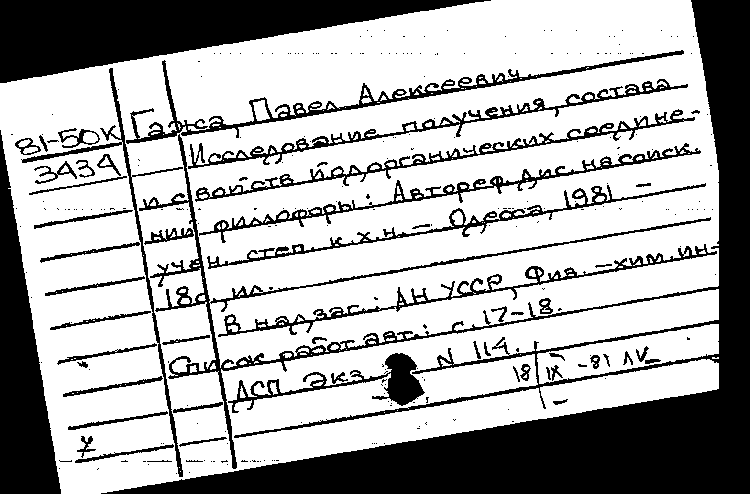 81-50К
3434
Гажа, Павел Алексеевич.
Исследование получения, состава
и свойств йодорганических соедине-
ний филлофоры: Автореф. дис. на соиск.
учен. степ. к.х.н. - Одесса, 1981 -
18с., ил.
В надзаг.: АН УССР, Физ.-хим. ин-
Список работ авт.: с. 17-18.
ДСП. Экз. N 114.
18/IX -81